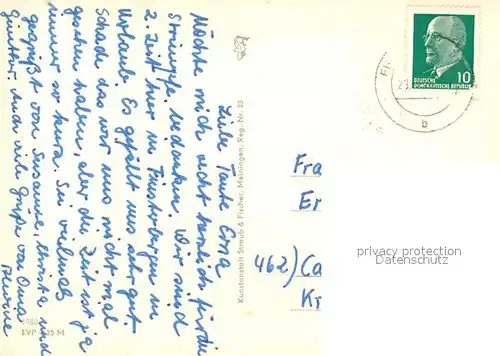 Liebe Tante Erna
Möchte mich recht herzlich für die
Strümpfe bedanken. Wir sind
z. Zeit hier in Finsterbergen in
Urlaub. Es gefällt uns sehr gut.
Schade das wir uns nicht mal
gesehen haben, aber die Zeit ist ja
immer so kurz. Sei vielmals
gegrüßt von Susanne, Christa und
Günter und viele Grüße von Oma
Kunstanstalt Straub & Fischer, Meiningen, Reg.-Nr. 25
EVP
M
10
DEUTSCHE
DEMOKRATISCHE REPUBLIK
b
Fra
Er
462) Ca
Kr
privacy protection
www.ansichtskartenversand.com